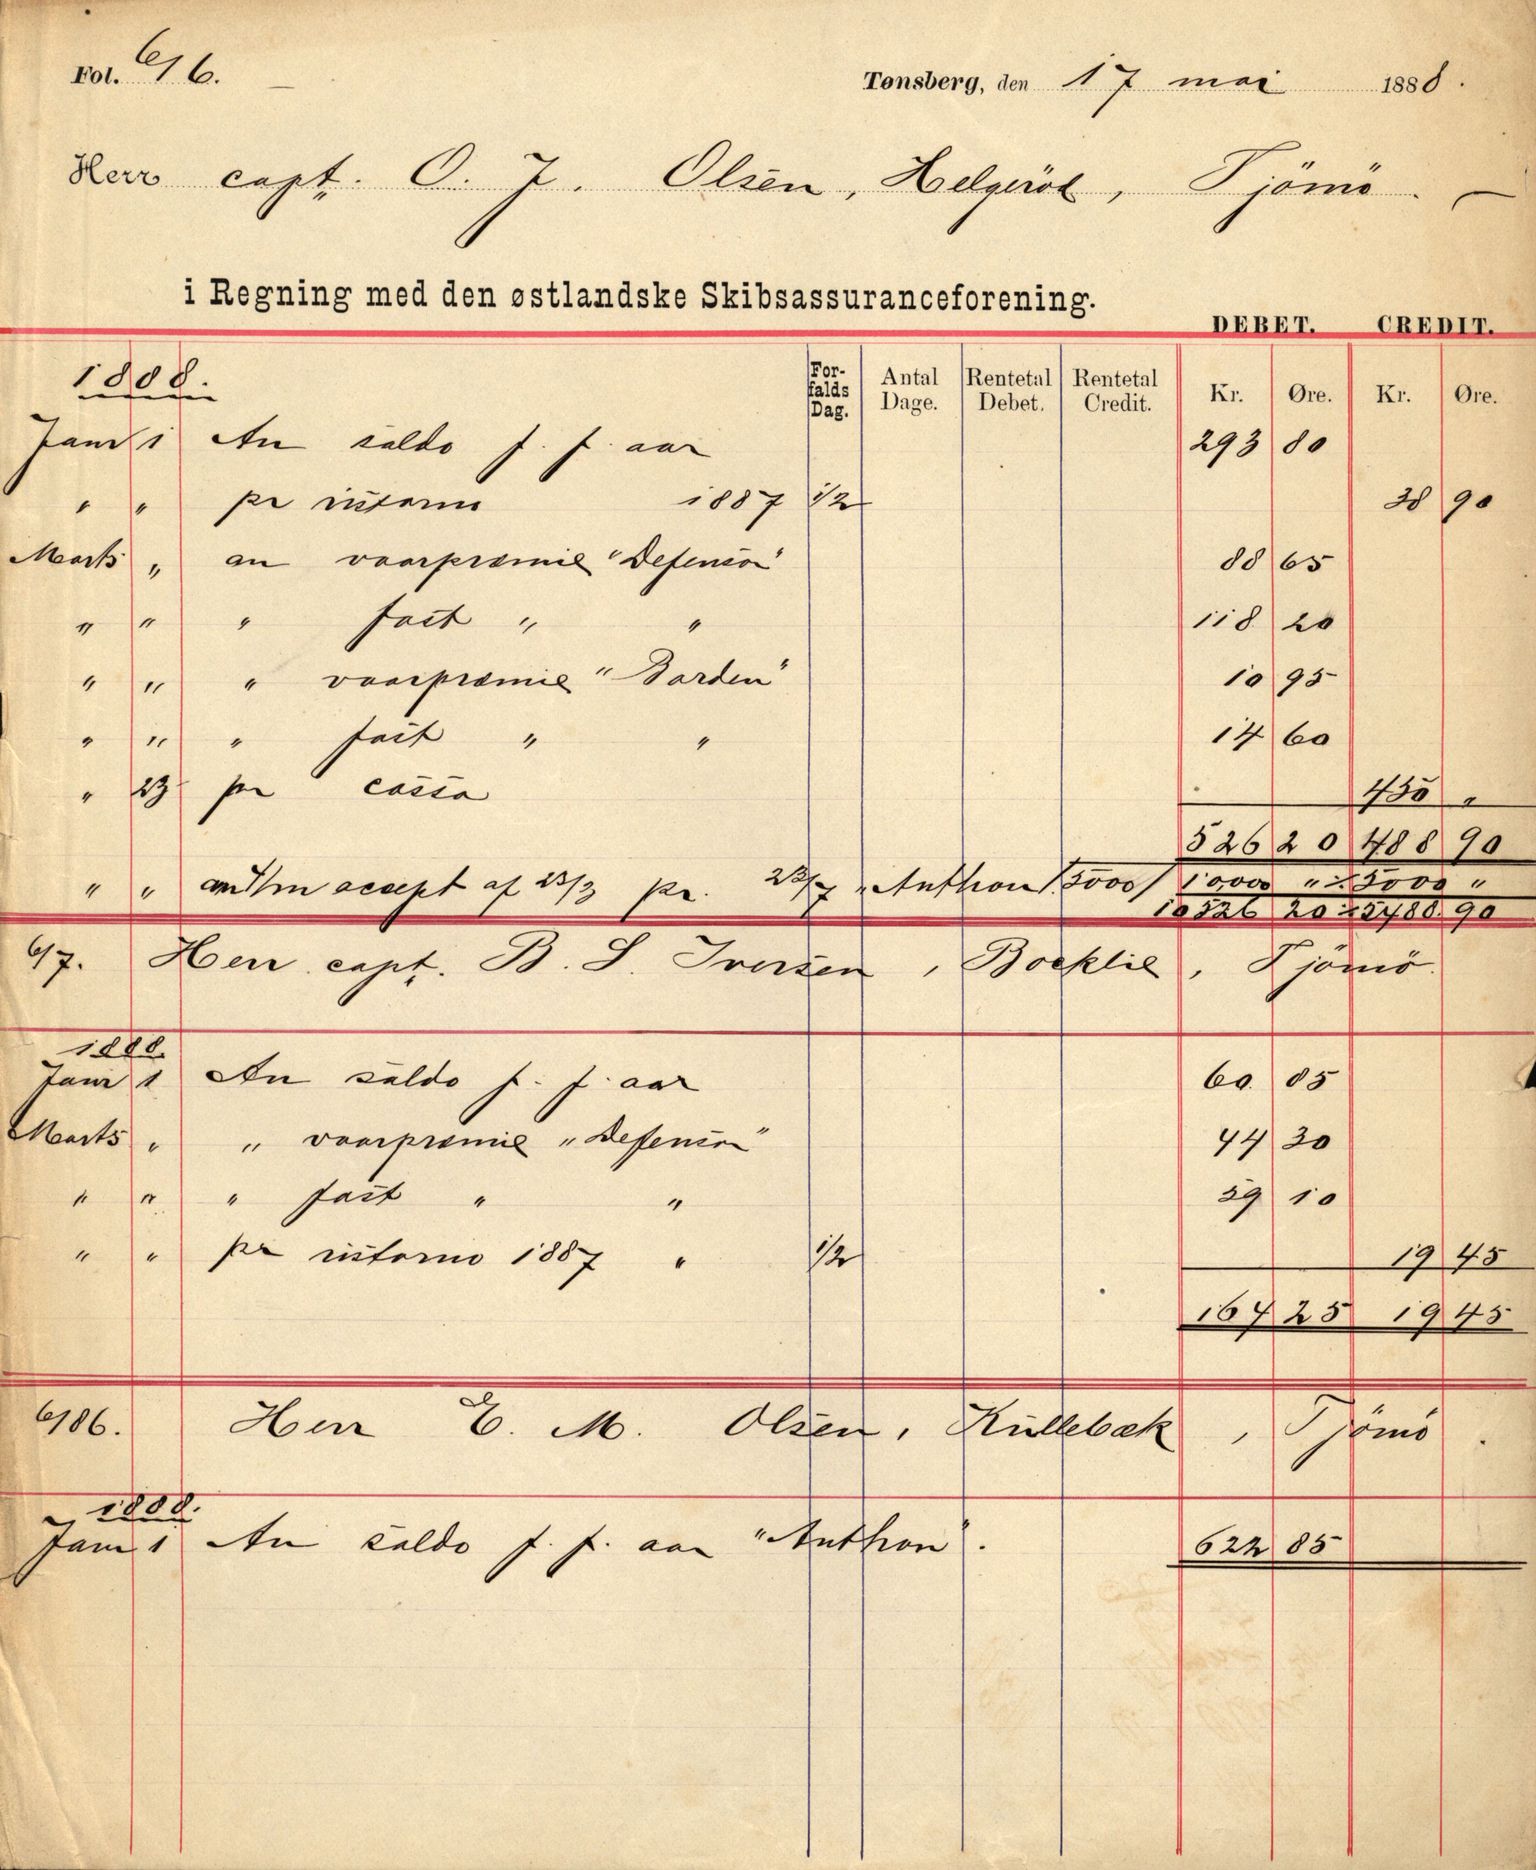 Fol. 616.
Tønsberg, den 17 mai 1888.
Herr capt. O. J. Olsen, Helgeröd, Tjömö.
i Regning med den østlandske Skibsassuranceforening.
DEBET. CREDIT.
For-falds Dag. Antal Dage. Rentetal Debet. Rentetal Credit. Kr. Øre. Kr. Øre.
1888.
Janr 1 An saldo f. f. aar 293 80
" " pr ristorno 1887 1/2 38 90
Marts " an vaarpremie "Defensor" 88 65
" " " fast " " 118 20
" " " vaarpremie "Norden" 10 95
" " " fast " " 14 60
" 23 pr cassa 450 "
526 20 488 90
" " accept af 23/3 pr. 23/7 "Anthon" 5000 " 5000 "
90
617. Herr capt. B. L. Iversen, Boeklie, Tjömö.
1888.
Janr 1 An saldo f. f. aar 60 85
Marts " " vaarpremie "Defensor" 44 30
" " " fast " " 59 10
" " pr ristorno 1887 " 1/2 19 45
164 25 19 45
6186. Herr E. M. Olsen, Küllebæk, Tjömö.
1888.
Janr 1 An saldo f. f. aar "Anthon". 622 85